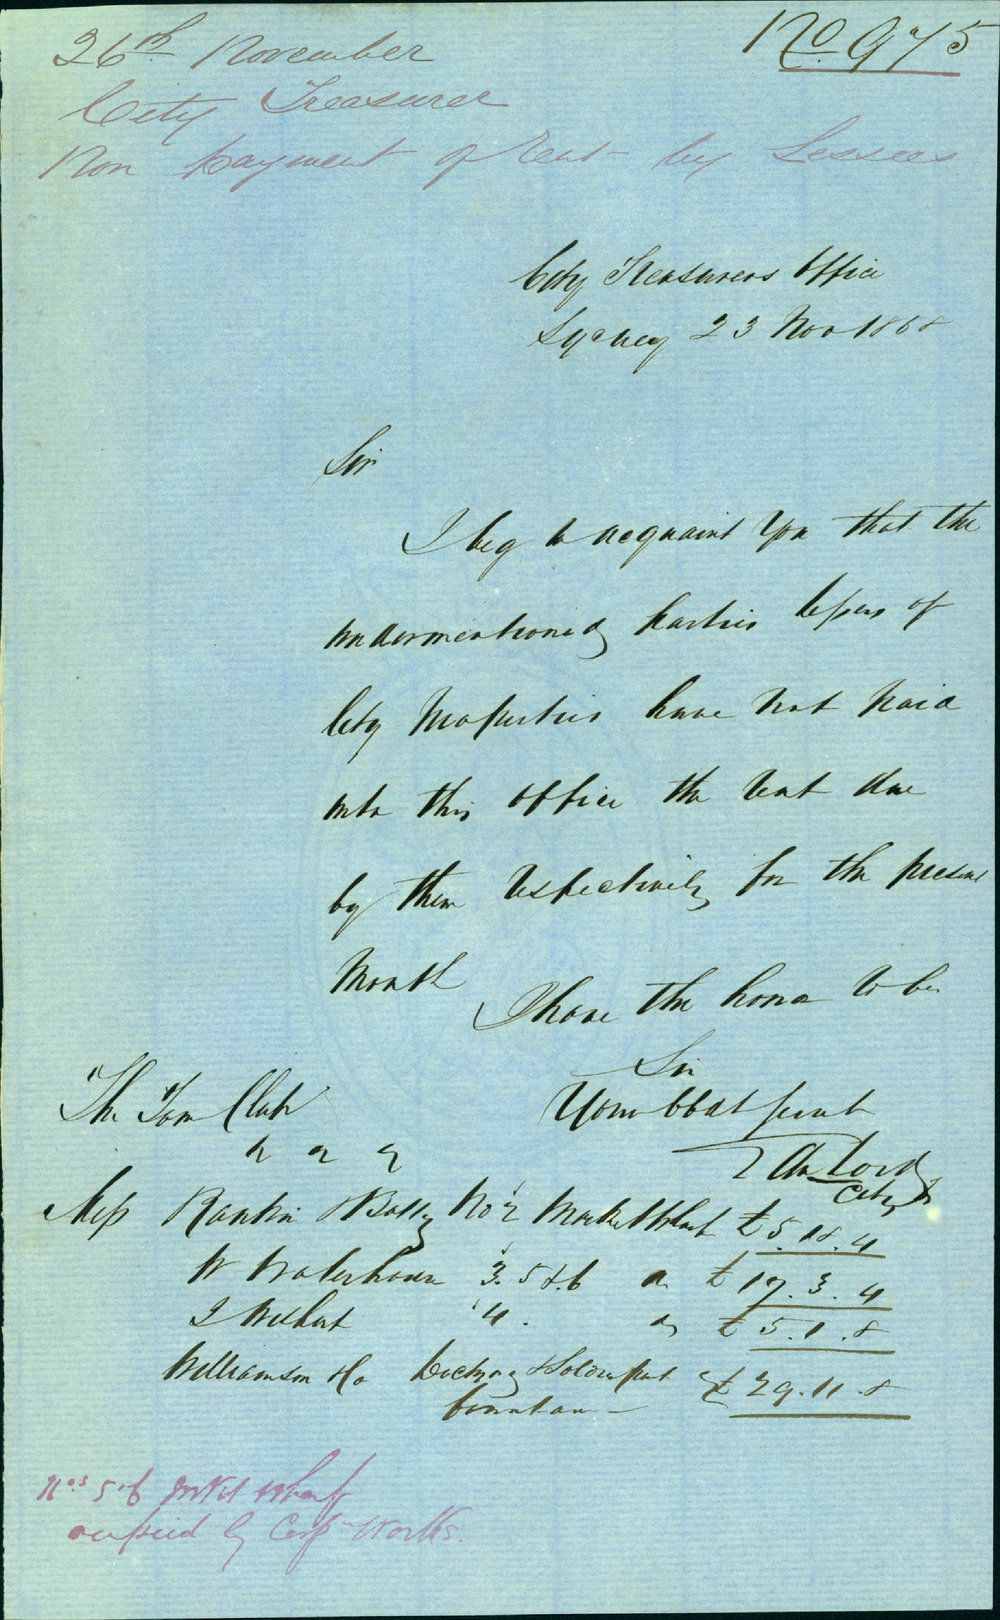 No 975
26th November
City Treasurer
Non Payment of Rent by Lessees
City Treasurers Office
Sydney 23 Nov 1868
Sir
I beg to acquaint You that the
undermentioned parties lessees of
City Properties have not paid
into this office the Rent due
by them respectively for the present
Month
I have the honor to be
Sir
The Town Clerk
Your Obdt servt
City
Mess Rankin & No 2 Market Wharf £5.18.4
W Waterhouse 3. 5 & 6 £17.3.4
J 4. £5.1.8
Williamson & Co £29.11.8
Nos 5 & 6 Mrkt Wharf
occupied by Corpn Works.